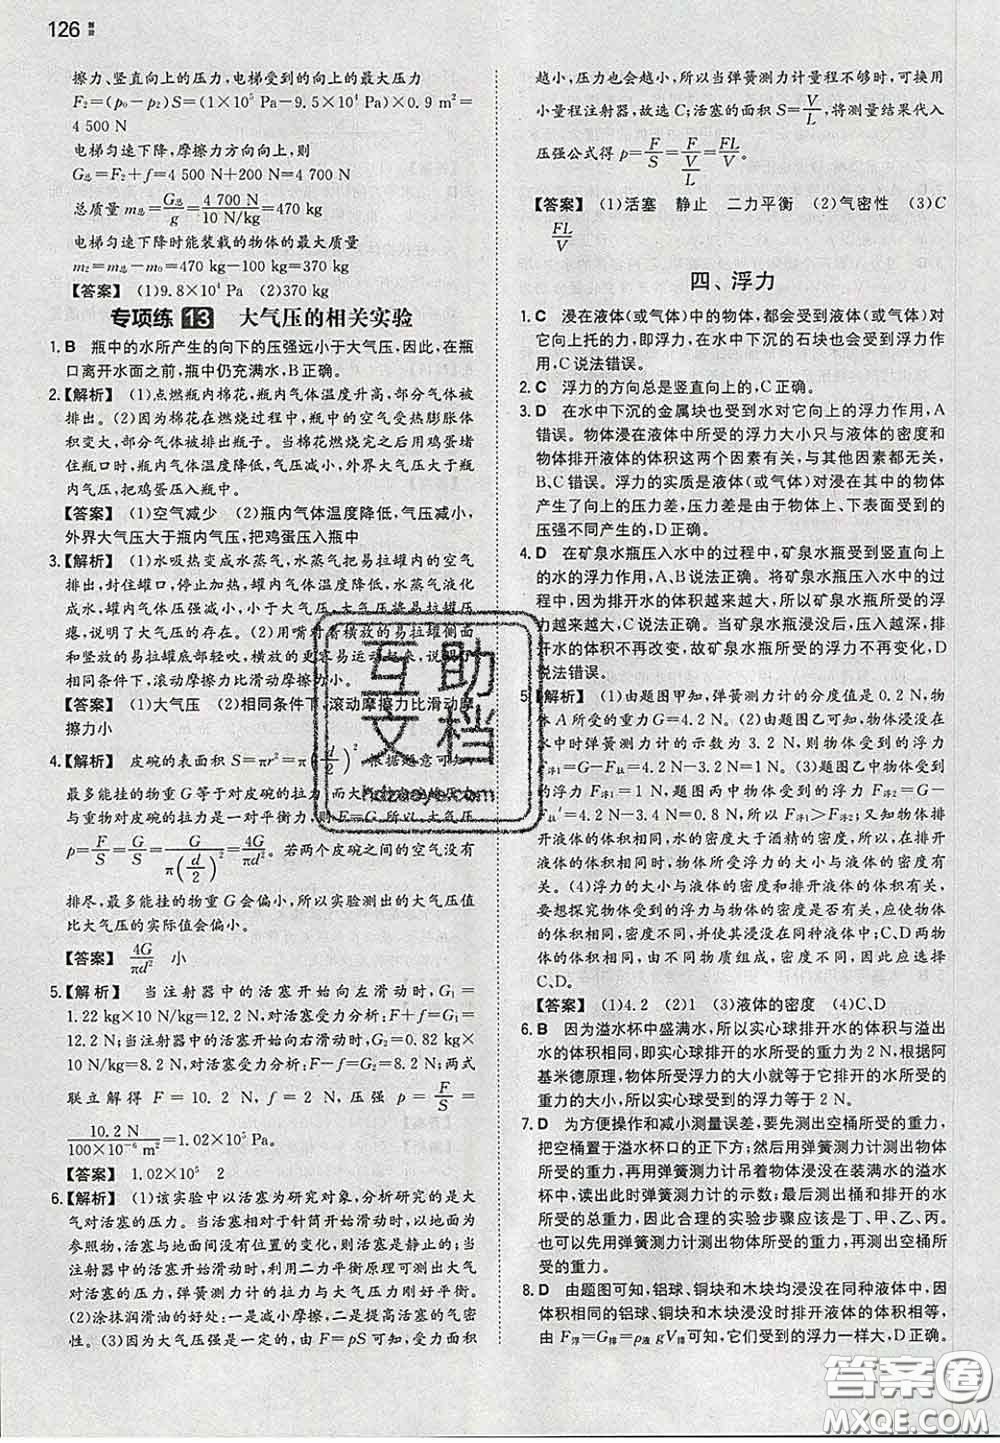 126
解
版
擦力、竖直向上的压力,电梯受到的向上的最大压力
F₂=(p₀-p₂)S=(1×10⁵ Pa-9.5×10⁴ Pa)×0.9 m²=
4 500 N
电梯匀速下降,摩擦力方向向上,则
G总=F₂+f=4 500 N+200 N=4 700 N
总质量 m总=G总/g=4 700 N/10 N/kg=470 kg
电梯匀速下降时能装载的物体的最大质量
m₂=m总-m₀=470 kg-100 kg=370 kg
【答案】 (1)9.8×10⁴ Pa (2)370 kg
专项练 13 大气压的相关实验
1. B 瓶中的水所产生的向下的压强远小于大气压,因此,在瓶
口离开水面之前,瓶中仍充满水,B正确。
2.【解析】 (1)点燃瓶内棉花,瓶内气体温度升高,部分气体被
排出。(2)因为棉花在燃烧过程中,瓶中的空气受热膨胀体
积变大,部分气体被排出瓶子。当棉花燃烧完之后用鸡蛋堵
住瓶口时,瓶内气体温度降低,气压减小,外界大气压大于瓶
内气压,把鸡蛋压入瓶中。
【答案】 (1)空气减少 (2)瓶内气体温度降低,气压减小,
外界大气压大于瓶内气压,把鸡蛋压入瓶中
3.【解析】 (1)水吸热变成水蒸气,水蒸气把易拉罐中的空气
排出,封住罐口,停止加热,罐内气体温度降低,水蒸气液化
成水,罐内气压减小,小于大气压,大气压将易拉罐压
瘪,说明了大气压的存在。(2)用嘴对着横放的易拉罐侧面
和竖放的易拉罐底部轻吹,横放的更容易运动起来,说明了
相同条件下,滚动摩擦力比滑动摩擦力小。
【答案】 (1)大气压 (2)相同条件下,滚动摩擦力比滑动摩
擦力小
4.【解析】 皮碗的表面积 S=πr²=π(d/2)²,根据题意可知,
最多能挂的物重 G 等于对皮碗的拉力,而大气对皮碗的压力
与重物对皮碗的拉力是一对平衡力,即 F=G,所以,大气压
p=F/S=G/S=G/π(d/2)²=4G/πd²。若两个皮碗之间的空气没有
排尽,最多能挂的物重 G 会偏小,所以实验测出的大气压值
比大气压的实际值会偏小。
【答案】 4G/πd² 小
5.【解析】 当注射器中的活塞开始向左滑动时,G₁=
1.22 kg×10 N/kg=12.2 N,对活塞受力分析:F+f=G₁=
12.2 N;当注射器中的活塞开始向右滑动时,G₂=0.82 kg×
10 N/kg=8.2 N,对活塞受力分析:F-f=G₂=8.2 N;两式
联立解得 F=10.2 N,f=2 N,压强 p=F/S=
10.2 N/100×10⁻⁶ m²=1.02×10⁵ Pa。
【答案】 1.02×10⁵ 2
6.【解析】 (1)该实验中以活塞为研究对象,分析研究的是大
气对活塞的压力。当活塞相对于针筒开始滑动时,以地面为
参照物,活塞与地面间没有位置的变化,则活塞是静止的;当
活塞处于静止状态时,受到平衡力,利用二力平衡原理可测
大气对活塞的压力,弹簧测力计的拉力与大气压力刚好平衡。
(2)涂抹润滑油的好处:一是减小摩擦,二是提高活塞的气密
性。(3)因为大气压强是一定的,由 F=pS 可知,受力面积
越小,压力也会越小,所以当弹簧测力计量程不够时,可换用
小量程注射器,故选 C;活塞的面积 S=V/L,将测量结果代入
压强公式得 p=F/S=F/(V/L)=FL/V。
【答案】 (1)活塞 静止 二力平衡 (2)气密性 (3)C
FL/V
四、浮力
1. C 浸在液体(或气体)中的物体,都会受到液体(或气体)对
它向上托的力,即浮力,在水中下沉的石块也受到浮力作
用,C说法错误。
2. C 浮力的方向总是竖直向上的,C正确。
3. D 在水中下沉的金属块也受到水对它向上的浮力作用,A
错误。物体浸在液体中所受的浮力大小只与液体的密度和
物体排开液体的体积这两个因素有关,与其他因素都无关,
B、C错误。浮力的实质是液体(或气体)对浸在其中的物体
产生了向上的压力差,压力差是由于物体上、下表面受到的
压强不同产生的,D正确。
4. D 在矿泉水瓶压入水中的过程中,矿泉水瓶受到竖直向上
的水的浮力作用,A、B说法正确。将矿泉水瓶压入水中的过
程中,因为排开水的体积越来越大,所以矿泉水瓶所受的浮
力越来越大,C说法正确。当矿泉水瓶浸没后,压入越深,排
开水的体积不再改变,故矿泉水瓶所受的浮力不再变化,D
说法错误。
5.【解析】 (1)由题图甲知,弹簧测力计的分度值是 0.2 N,物
体 A 所受的重力 G=4.2 N。(2)由题图乙可知,物体浸没在
水中时弹簧测力计的示数为 3.2 N,则物体受到的浮力
F浮1=G-F拉=4.2 N-3.2 N=1 N。(3)题图乙中物体受到
的浮力 F浮1=1 N,题图丙中物体受到的浮力 F浮2=G-
F拉′=4.2 N-3.4 N=0.8 N,所以 F浮1>F浮2;又知物体排
开液体的体积相同,水的密度大于酒精的密度,由此得出:在
排开液体的体积相同时,物体所受浮力的大小与液体的密度有
关。(4)浮力的大小与液体的密度和排开液体的体积有关,
要想探究物体受到的浮力与物体的密度是否有关,应使物体
的体积相同,由不同物质组成,且浸没在同种液体中,C、D
中物体的体积相同,由不同物质组成,可以进行实验,应选择
C、D。
【答案】 (1)4.2 (2)1 (3)液体的密度 (4)C、D
6. B 因为溢水杯中盛满水,所以实心球排开水的体积与溢出
水的体积相同,即实心球排开的水所受的重力为 2 N,根据阿
基米德原理,物体所受浮力的大小就等于它排开的水所受的
重力大小,所以实心球受到的浮力等于 2 N。
7. D 为方便操作和减小测量误差,要先测出空桶所受的重力,
把空桶置于溢水杯口的正下方;然后用弹簧测力计测出物体
所受的重力,再用弹簧测力计吊着物体浸没在装满水的溢水
杯中,读出此时弹簧测力计的示数;最后测出桶和排开的水
所受的总重力,因此合理的实验步骤应该是丁、甲、乙、丙。
也可以先用弹簧测力计测出物体所受的重力,再测出空桶所
受的重力。
8. D 由题图可知,铝球、铜块和木块均浸没在同种液体中,因
体积相同的铝球、铜块和木块浸没时排开液体的体积相等,
由 F浮=G排=ρ液gV排可知,它们受到的浮力一样大,D正确。
互助
文档
hdzuoye.com
答案圈
MXQE.COM